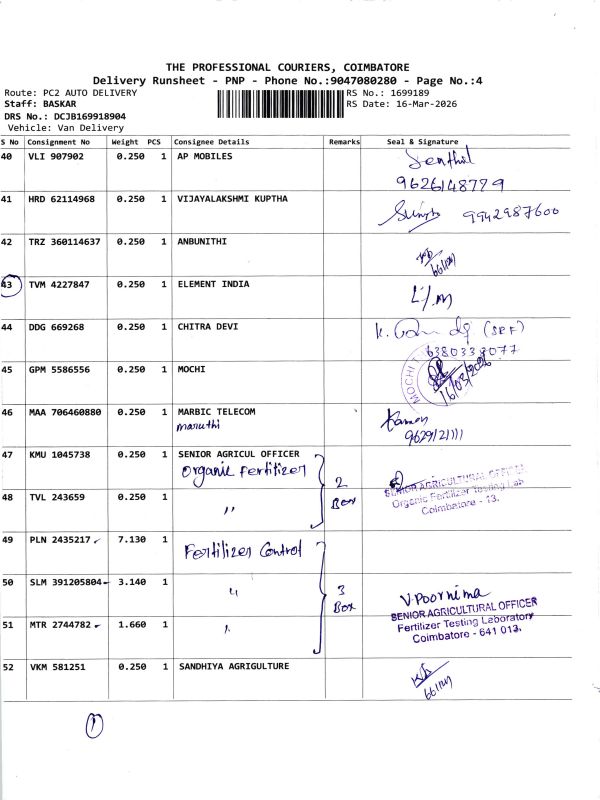 THE PROFESSIONAL COURIERS, COIMBATORE
Delivery Runsheet - PNP - Phone No.:9047080280 - Page No.:4
Route: PC2 AUTO DELIVERY
RS No.: 1699189
Staff: BASKAR
RS Date: 16-Mar-2026
DRS No.: DCJB169918904
Vehicle: Van Delivery
S No Consignment No Weight PCS Consignee Details Remarks Seal & Signature
40 VLI 907902 0.250 1 AP MOBILES Senthil
9626148779
41 HRD 62114968 0.250 1 VIJAYALAKSHMI KUPTHA
9942987600
42 TRZ 360114637 0.250 1 ANBUNITHI
43 TVM 4227847 0.250 1 ELEMENT INDIA
44 DDG 669268 0.250 1 CHITRA DEVI
6380339077
45 GPM 5586556 0.250 1 MOCHI MOCHI
16/03/2026
46 MAA 706460880 0.250 1 MARBIC TELECOM
maruthi
9629121111
47 KMU 1045738 0.250 1 SENIOR AGRICUL OFFICER
Organic Fertilizer 2
Box
SENIOR AGRICULTURAL OFFICER
Organic Fertilizer Testing Lab
Coimbatore - 13.
48 TVL 243659 0.250 1 "
49 PLN 2435217 7.130 1
Fertilizer Control
50 SLM 391205804 3.140 1 " 3
Box
V.Poornima
SENIOR AGRICULTURAL OFFICER
Fertilizer Testing Laboratory
Coimbatore - 641 013.
51 MTR 2744782 1.660 1 "
52 VKM 581251 0.250 1 SANDHIYA AGRIGULTURE
1